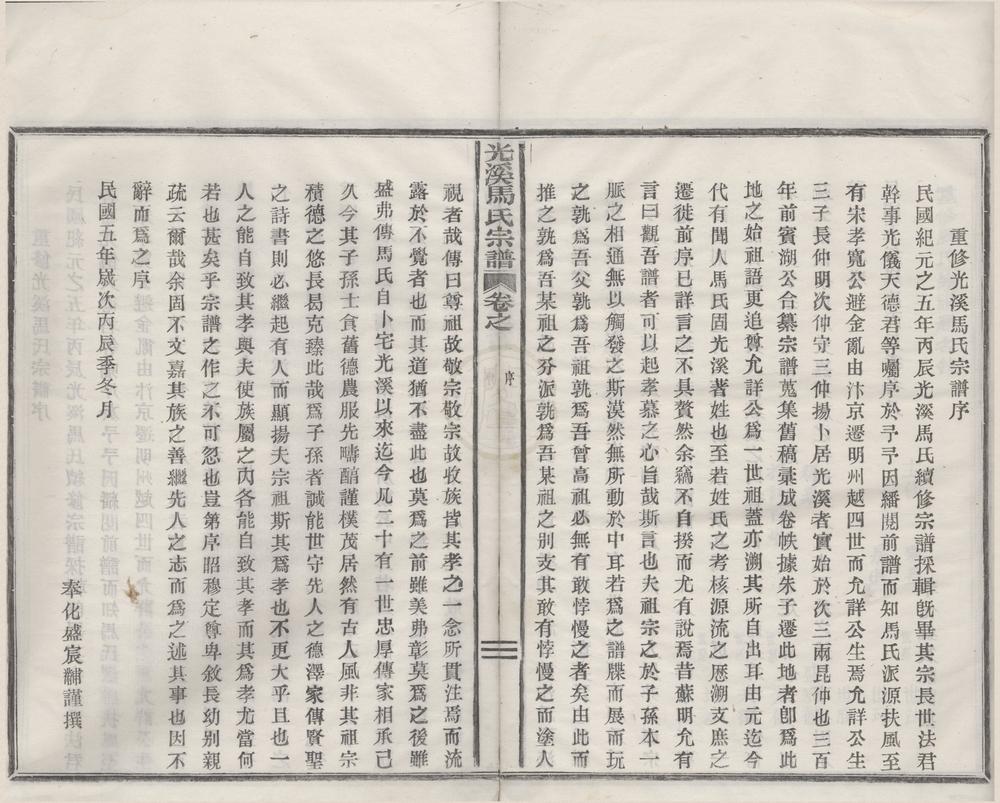 重修光溪馬氏宗譜序
民國紀元之五年丙辰光溪馬氏續修宗譜採輯旣畢其宗長世法君
幹事光儀天德君等囑序於予予因繙閱前譜而知馬氏派源扶風至
有宋孝寬公避金亂由汴京遷明州越四世而允詳公生焉允詳公生
三子長仲明次仲守三仲揚卜居光溪者實始於次三兩昆仲也三百
年前賓湖公合纂宗譜蒐集舊稿彙成卷帙據朱子遷此地者卽爲此
地之始祖語更追尊允詳公爲一世祖蓋亦溯其所自出耳由元迄今
代有聞人馬氏固光溪著姓也至若姓氏之考核源流之歷溯支庶之
遷徙前序已詳言之不具贅然余竊不自揆而尤有說焉昔蘇明允有
言曰觀吾譜者可以起孝慕之心旨哉斯言也夫祖宗之於子孫本一
脈之相通無以觸發之斯漠然無所動於中耳若爲之譜牒而展而玩
之孰爲吾父孰爲吾祖孰爲吾曾高祖必無有敢悖慢之者矣由此而
推之孰爲吾某祖之分派孰爲吾某祖之別支其敢有悖慢之而塗人
光溪馬氏宗譜 卷之 序
視者哉傳曰尊祖故敬宗敬宗故收族皆其孝之一念所貫注焉而流
露於不覺者也而其道猶不盡此也莫爲之前雖美弗彰莫爲之後雖
盛弗傳馬氏自卜宅光溪以來迄今凡二十有一世忠厚傳家相承已
久今其子孫士食舊德農服先疇醕謹樸茂居然有古人風非其祖宗
積德之悠長曷克臻此哉爲子孫者誠能世守先人之德澤家傳賢聖
之詩書則必繼起有人而顯揚夫宗祖斯其爲孝也不更大乎且也一
人之能自致其孝與夫使族屬之內各能自致其孝而其爲孝尤當何
若也甚矣乎宗譜之作之不可忽也豈第序昭穆定尊卑敘長幼別親
疏云爾哉余固不文嘉其族之善繼先人之志而爲之述其事也因不
辭而爲之序
民國五年歲次丙辰季冬月
奉化盛宸黼謹撰